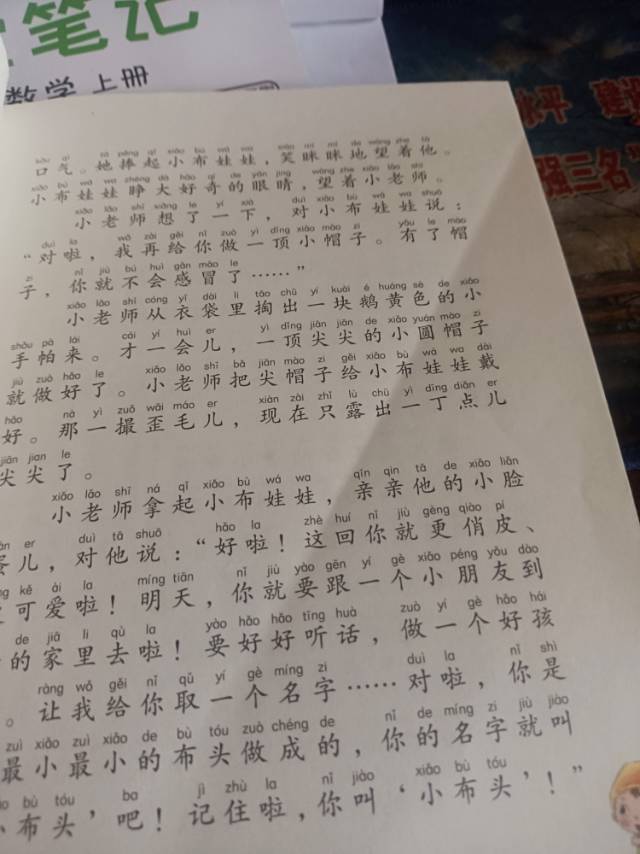 笔记
数学 上册
水平 建设
强三名
kǒu qì tā pěng qǐ xiǎo bù wá wa xiào mī mī de wàng zhe tā
口气。她捧起小布娃娃，笑眯眯地望着他。
xiǎo bù wá wa zhēng dà hào qí de yǎn jing wàng zhe xiǎo lǎo shī
小布娃娃睁大好奇的眼睛，望着小老师。
xiǎo lǎo shī xiǎng le yí xià duì xiǎo bù wá wa shuō
小老师想了一下，对小布娃娃说：
duì la wǒ zài gěi nǐ zuò yì dǐng xiǎo mào zi yǒu le mào
“对啦，我再给你做一顶小帽子。有了帽
zi nǐ jiù bú huì gǎn mào le
子，你就不会感冒了……”
xiǎo lǎo shī cóng yī dài li tāo chū yí kuài é huáng sè de xiǎo
小老师从衣袋里掏出一块鹅黄色的小
shǒu pà lái cái yí huì er yì dǐng jiān jiān de xiǎo yuán mào zi
手帕来。才一会儿，一顶尖尖的小圆帽子
jiù zuò hǎo le xiǎo lǎo shī bǎ jiān mào zi gěi xiǎo bù wá wa dài
就做好了。小老师把尖帽子给小布娃娃戴
hǎo nà yì zuǒ wāi máo er xiàn zài zhǐ lù chū yì dīng diǎn er
好。那一撮歪毛儿，现在只露出一丁点儿
jiān jian le
尖尖了。
xiǎo lǎo shī ná qǐ xiǎo bù wá wa qīn qin tā de xiǎo liǎn
小老师拿起小布娃娃，亲亲他的小脸
er duì tā shuō hǎo la zhè huí nǐ jiù gèng qiào pí
蛋儿，对他说：“好啦！这回你就更俏皮、
kě ài la míng tiān nǐ jiù yào gēn yí gè xiǎo péng yǒu dào
可爱啦！明天，你就要跟一个小朋友到
de jiā li qù la yào hǎo hǎo tīng huà zuò yí gè hǎo hái
的家里去啦！要好好听话，做一个好孩
ràng wǒ gěi nǐ qǔ yí gè míng zi duì la nǐ shì
。让我给你取一个名字……对啦，你是
zuì xiǎo zuì xiǎo de bù tóu zuò chéng de nǐ de míng zi jiù jiào
最小最小的布头做成的，你的名字就叫
bù tóu ba jì zhù la nǐ jiào xiǎo bù tóu
小布头’吧！记住啦，你叫‘小布头’！”